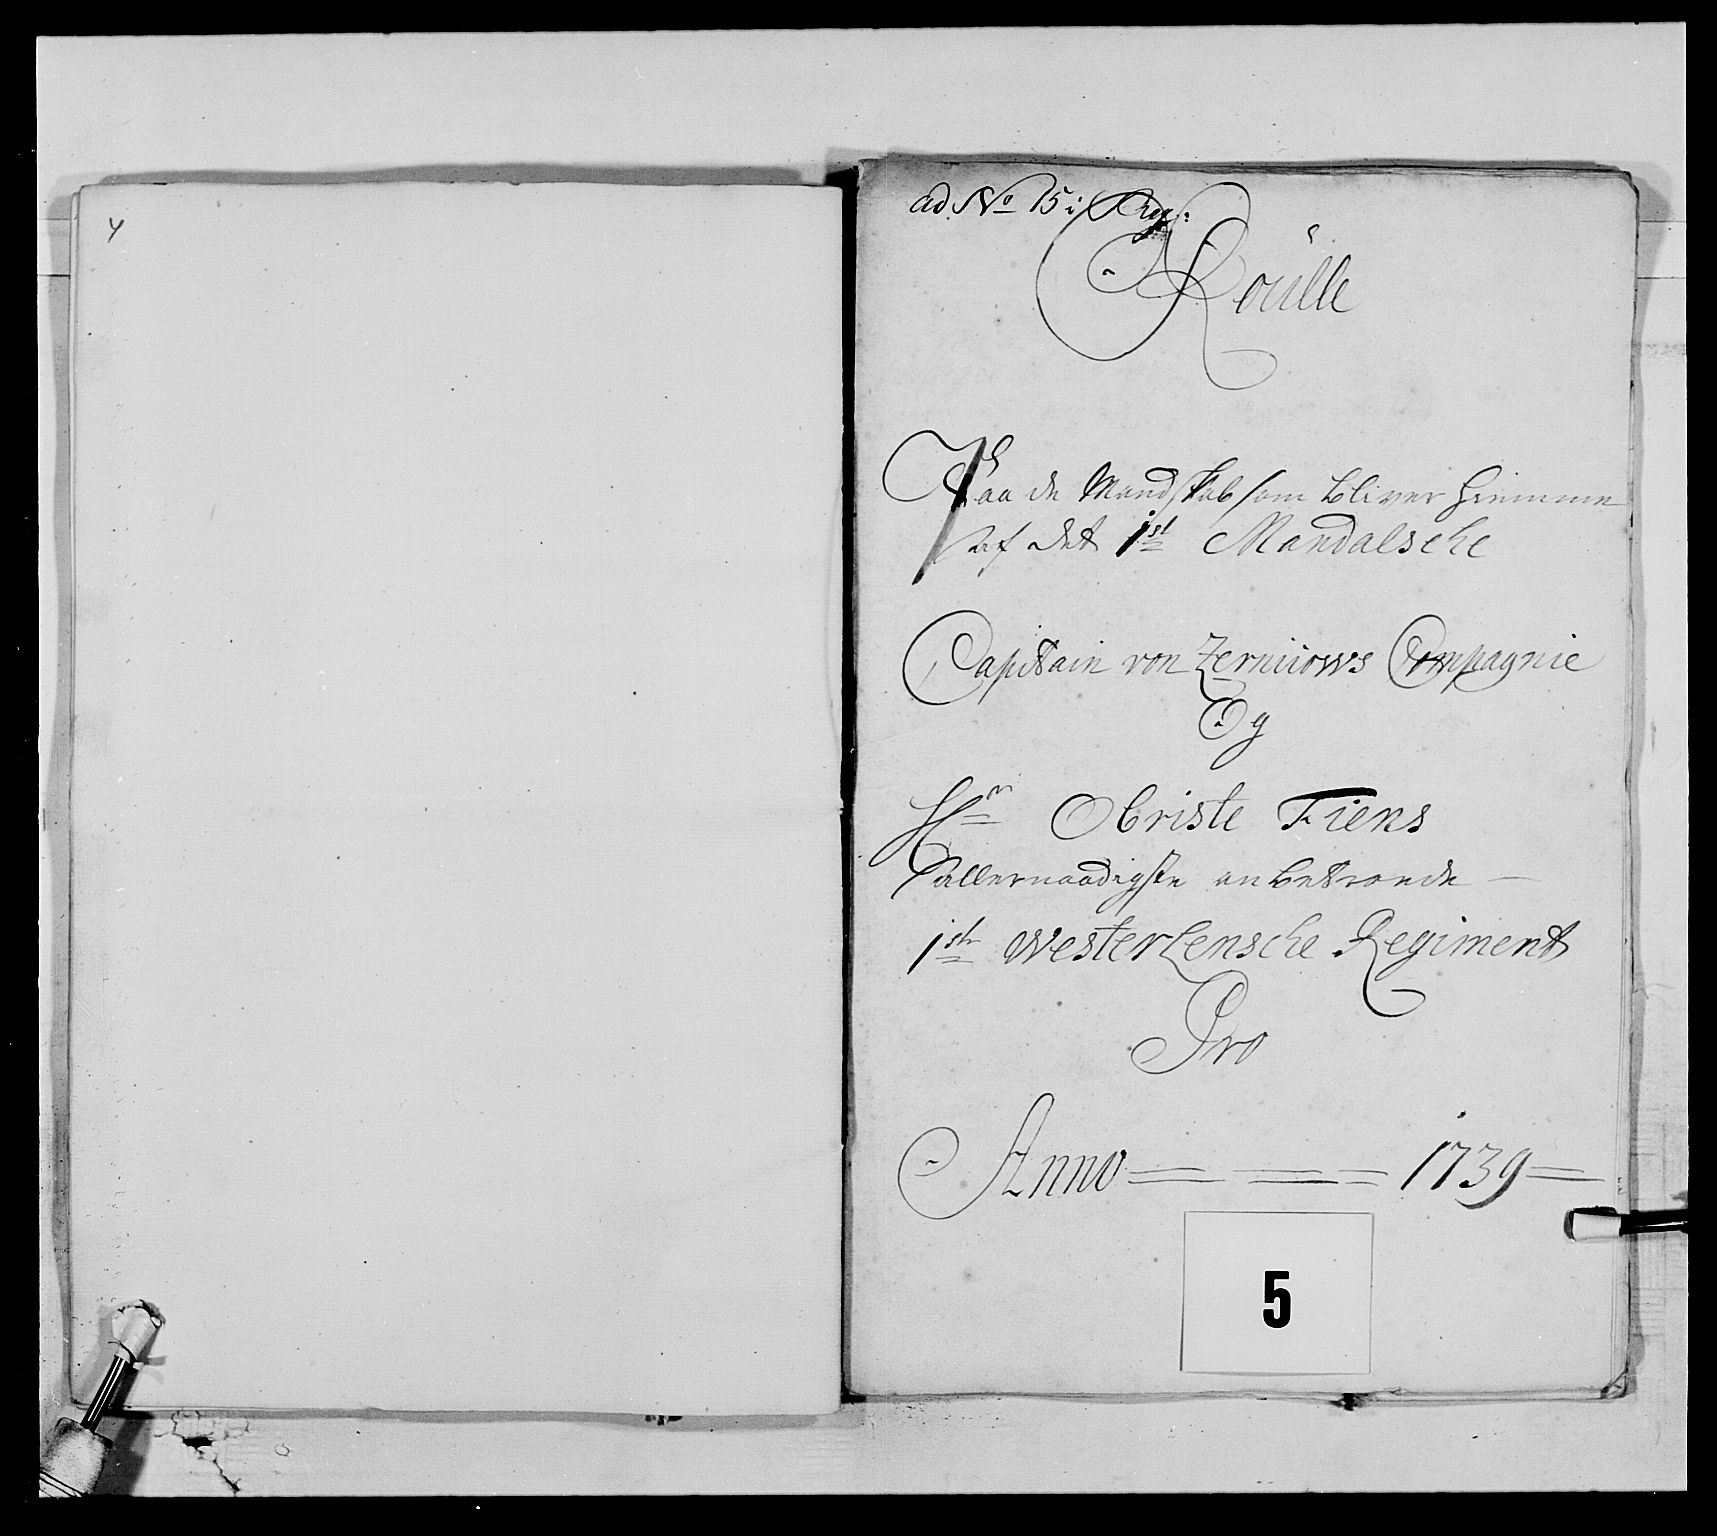 4
ad No 15 i Reg:
Roulle
Paa de Mandskab som bliver hiemme
af det 1st Mandalsche
Capitain von Zernikows Compagnie
Og
Hr Obriste Fiens
allernaadigste anbetroede
1ste Westerlensche Regiment
Pro
Anno 1739
5